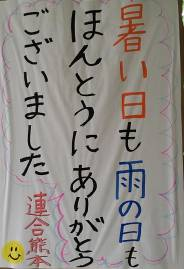 暑い日も雨の日も
ほんとうにありがとう
ございました
連合熊本